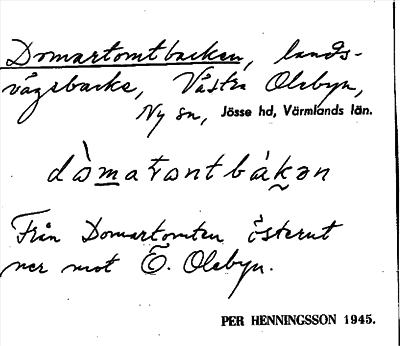 Domartomtbacken, lands-
vägsbacke, Västra Olsbyn,
Ny sn, Jösse hd, Värmlands län.
dòmaṯontbákən
Från Domartomten österut
ner mot Ö. Olsbyn.
PER HENNINGSSON 1945.